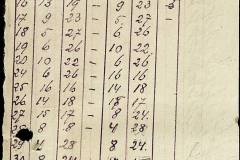 16 13 19 – 9 23 – 3
17 9 23 – 5 27 –
18 5 27 – 6 26
19 6 26 – 10 22
20 10 22 – 6 26
24 6 26 – 16 16
25 16 16 – 14 18
26 14 18 – 15 17
27 15 17 – 8 24
28 8 – 4 28
29 4 28 – 8 24
30 8 24 –